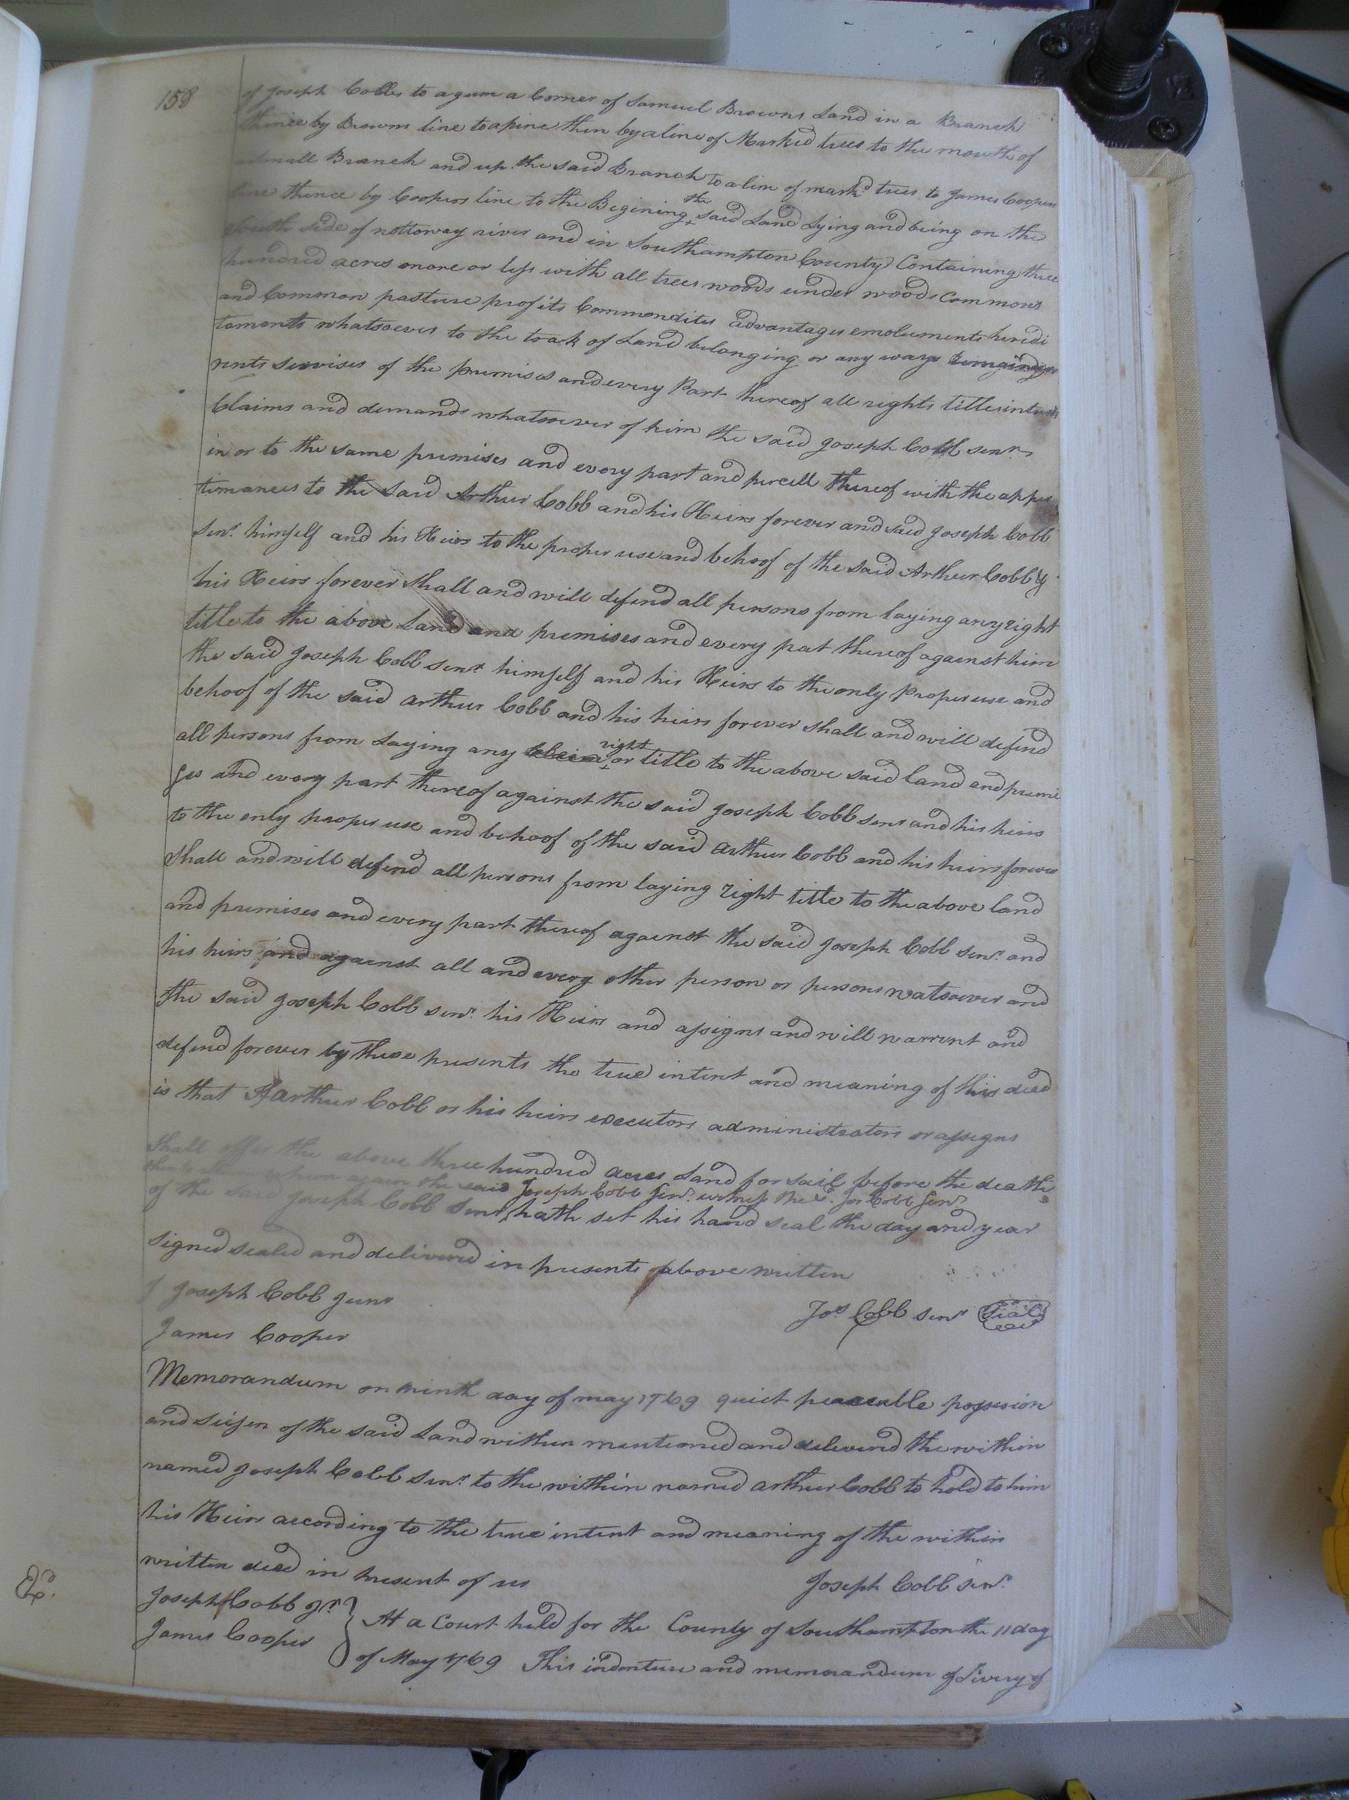 158
of Joseph Cobbs to a gum a Corner of Samuel Browns Land in a Branch
thence by Browns line to a pine then by a line of Marked trees to the mouth of
a small Branch and up the said Branch to a line of markd trees to James Coopers
line thence by Coopers line to the Begining the said Land Lying and being on the
South side of nottoway river and in Southampton County Containing three
hundred acres more or less with all trees woods under woods Commons
and Common pasture profits Commondities advantages emoluments heridi
taments whatsoever to the track of Land belonging or any ways
rents servises of the premises and every Part thereof all rights title
Claims and demands whatsoever of him the said Joseph Cobb senr
in or to the same premises and every part and percell thereof with the appu
tinances to the said Arthur Cobb and his Heirs forever and said Joseph Cobb
senr. himself and his Heirs to the proper use and behoof of the said Arthur Cobb &
his Heirs forever shall and will defend all persons from laying any right
title to the above Land and premises and every part thereof against him
the said Joseph Cobb senr himself and his Heirs to the only proper use and
behoof of the said arthur Cobb and his heirs forever shall and will defend
all persons from Laying any right or title to the above said land and premi
ses and every part thereof against the said Joseph Cobb senr and his heirs
to the only proper use and behoof of the said arthur Cobb and his heirs forever
shall and will defend all persons from laying right title to the above land
and premises and every part thereof against the said Joseph Cobb senr. and
his heirs and against all and every other person or persons watsoever and
the said Joseph Cobb senr. his Heirs and assigns and will warrent and
defend forever by these presents the true intent and meaning of this deed
is that Aarthur Cobb or his heirs executors administrators or assigns
Shall offer the above three hundred acres Land for sail before the death
again the said Joseph Cobb Senr. witness the sd. Jos Cobb Senr.
of the said Joseph Cobb Senr. hath set his hand seal the day and year
signed sealed and delivered in presents above written
of Joseph Cobb junr
Jos Cobb senr Seal
James Cooper
Memorandum on ninth day of may 1769 quiet peaceable possesion
and Seizen of the said Land within mentioned and delivered the within
named Joseph Cobb senr. to the within named arthur Cobb to hold to him
his Heirs according to the true intent and meaning of the within
written deed in present of us
Joseph Cobb senr.
Joseph Cobb Jr.
James Cooper
At a Court held for the County of Southampton the 11 day
of May 1769 This indenture and memorandum of Livery of